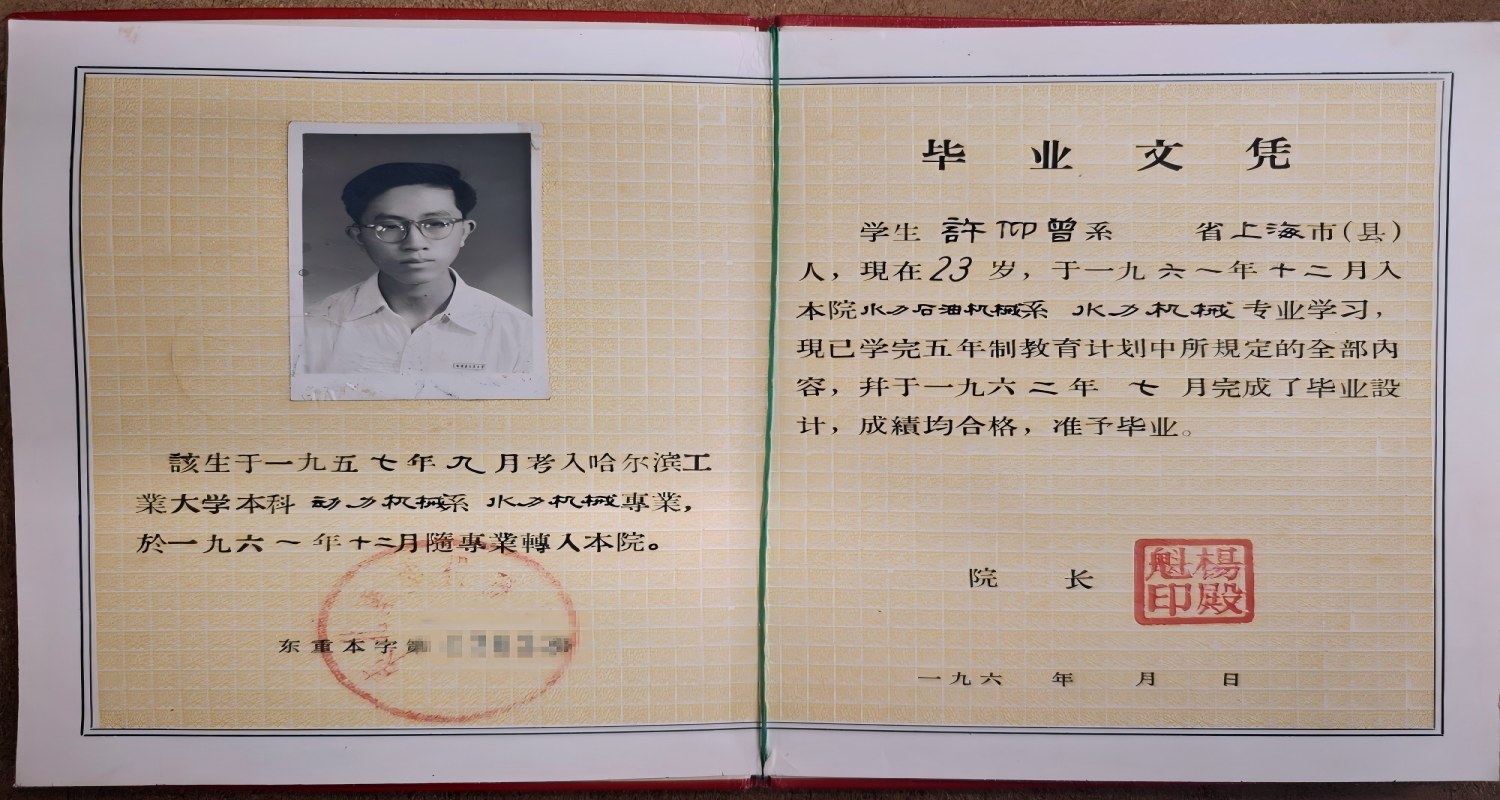 該生于一九五七年九月考入哈尔滨工
業大学本科 动力机械系 水力机械專業，
於一九六一年十二月隨專業轉入本院。
东重本字第
毕业文凭
学生 許仰曾系 省上海市(县)
人，現在23岁，于一九六一年十二月入
本院水力石油机械系 水力机械专业学习，
現已学完五年制教育计划中所規定的全部内
容，幷于一九六二年 七 月完成了毕业設
计，成績均合格，准予毕业。
院 长
楊殿魁印
一九六 年 月 日